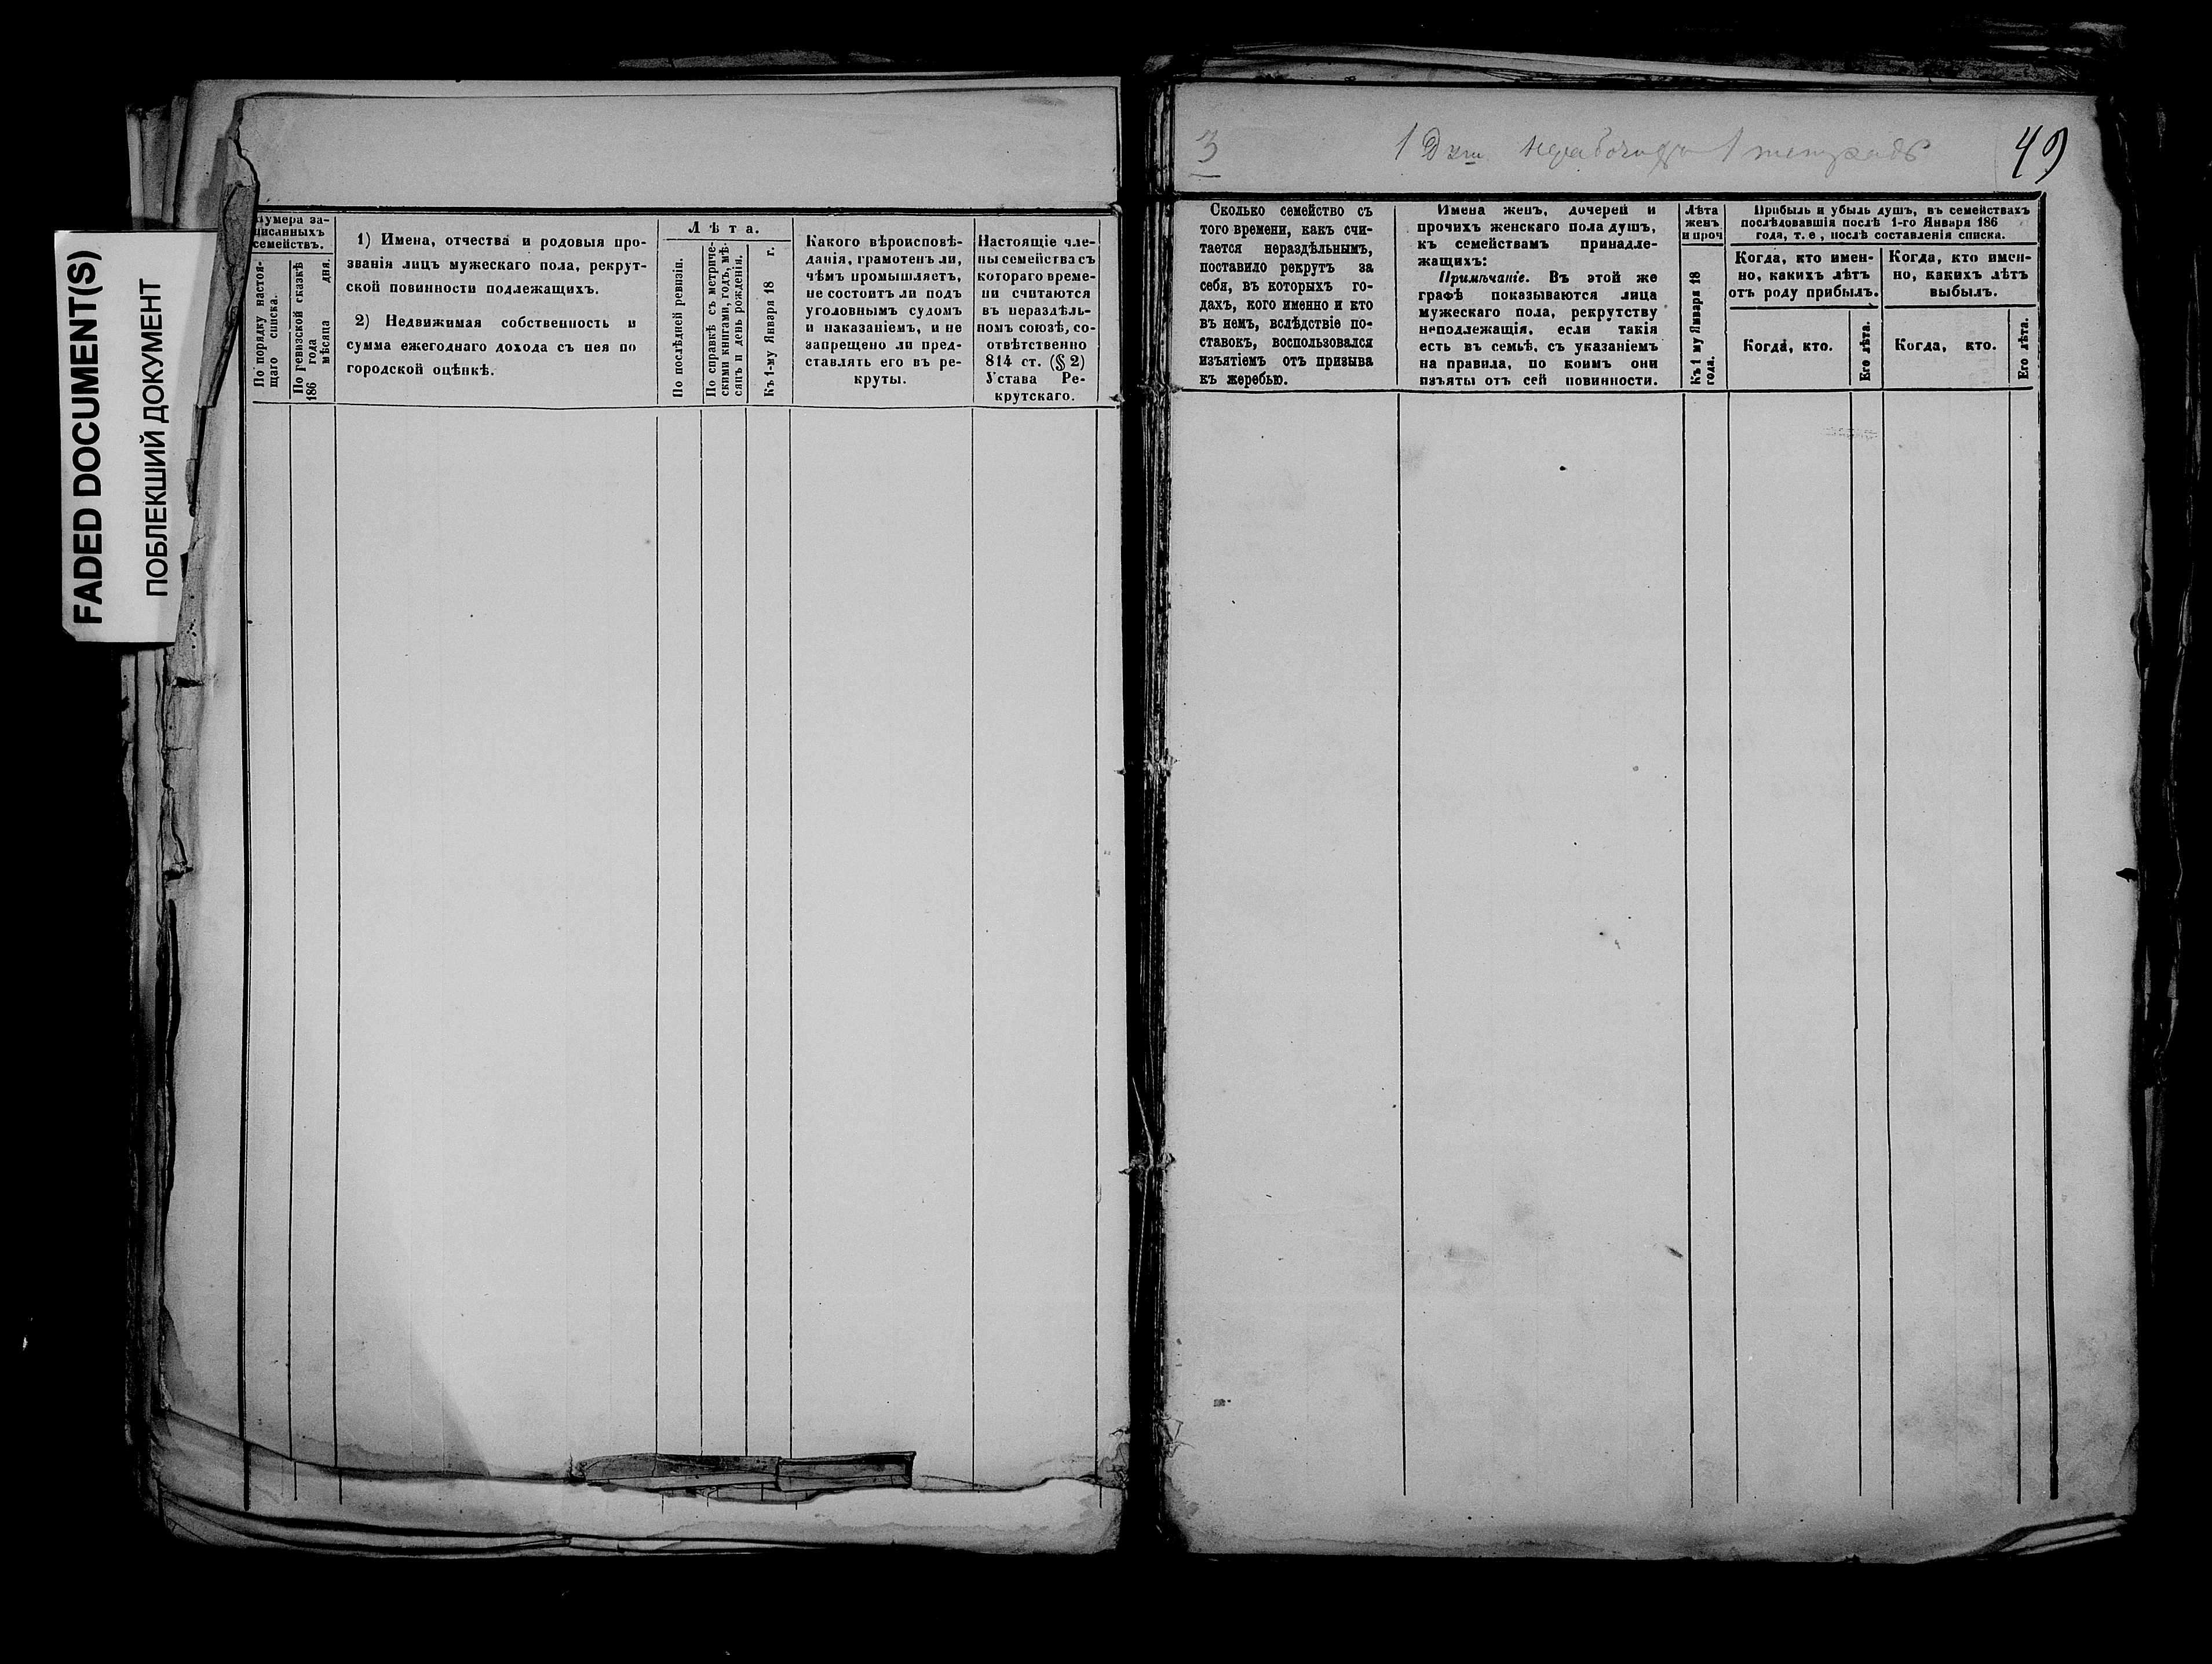 FADED DOCUMENT(S)
ПОБЛЕКШИЙ ДОКУМЕНТ
Нумера за-
писанныхъ
семействъ.
По порядку настоя-
щаго списка.
По ревизской сказкѣ
186 года мѣсяца дня.
1) Имена, отчества и родовыя про-
званія лицъ мужескаго пола, рекрут-
ской повинности подлежащихъ.
2) Недвижимая собственность и
сумма ежегоднаго дохода съ нея по
городской оцѣнкѣ.
Лѣта.
По послѣдней ревизіи.
По справкѣ съ метриче-
скими книгами, годъ, мѣ-
сяцъ и день рожденія.
Къ 1-му Января 18 г.
Какого вѣроисповѣ-
данія, грамотенъ ли,
чѣмъ промышляетъ,
не состоитъ ли подъ
уголовнымъ судомъ
и наказаніемъ, и не
запрещено ли пред-
ставлять его въ ре-
круты.
Настоящіе чле-
ны семейства съ
котораго време-
ни считаются
въ нераздѣль-
номъ союзѣ, со-
отвѣтственно
814 ст. (§ 2)
Устава Ре-
крутскаго.
3
1
1 тетрадь
49
Сколько семейство съ
того времени, какъ счи-
тается нераздѣльнымъ,
поставило рекрутъ за
себя, въ которыхъ го-
дахъ, кого именно и кто
въ немъ, вслѣдствіе по-
ставокъ, воспользовался
изъятіемъ отъ призыва
къ жеребью.
Имена женъ, дочерей и
прочихъ женскаго пола душъ,
къ семействамъ принадле-
жащихъ:
Примѣчаніе. Въ этой же
графѣ показываются лица
мужескаго пола, рекрутству
неподлежащія, если такія
есть въ семьѣ, съ указаніемъ
на правила, по коимъ они
изъяты отъ сей повинности.
Лѣта
женъ
и проч
Къ 1 му Января 18
года.
Прибыль и убыль душъ, въ семействахъ
послѣдовавшія послѣ 1-го Января 186
года, т. е, послѣ составленія списка.
Когда, кто имен-
но, какихъ лѣтъ
отъ роду прибылъ.
Когда, кто.
Его лѣта.
Когда, кто имен-
но, какихъ лѣтъ
выбылъ.
Когда, кто.
Его лѣта.